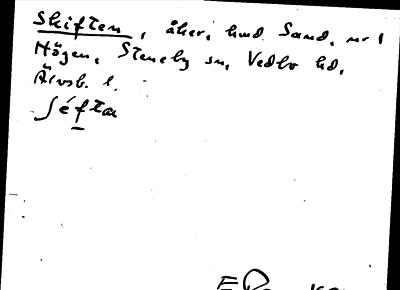 Skiften, åker, hmd Sand, nr 1
Högen, Steneby sn, Vedbo hd,
Älvsb. l.
ʃéftɑ